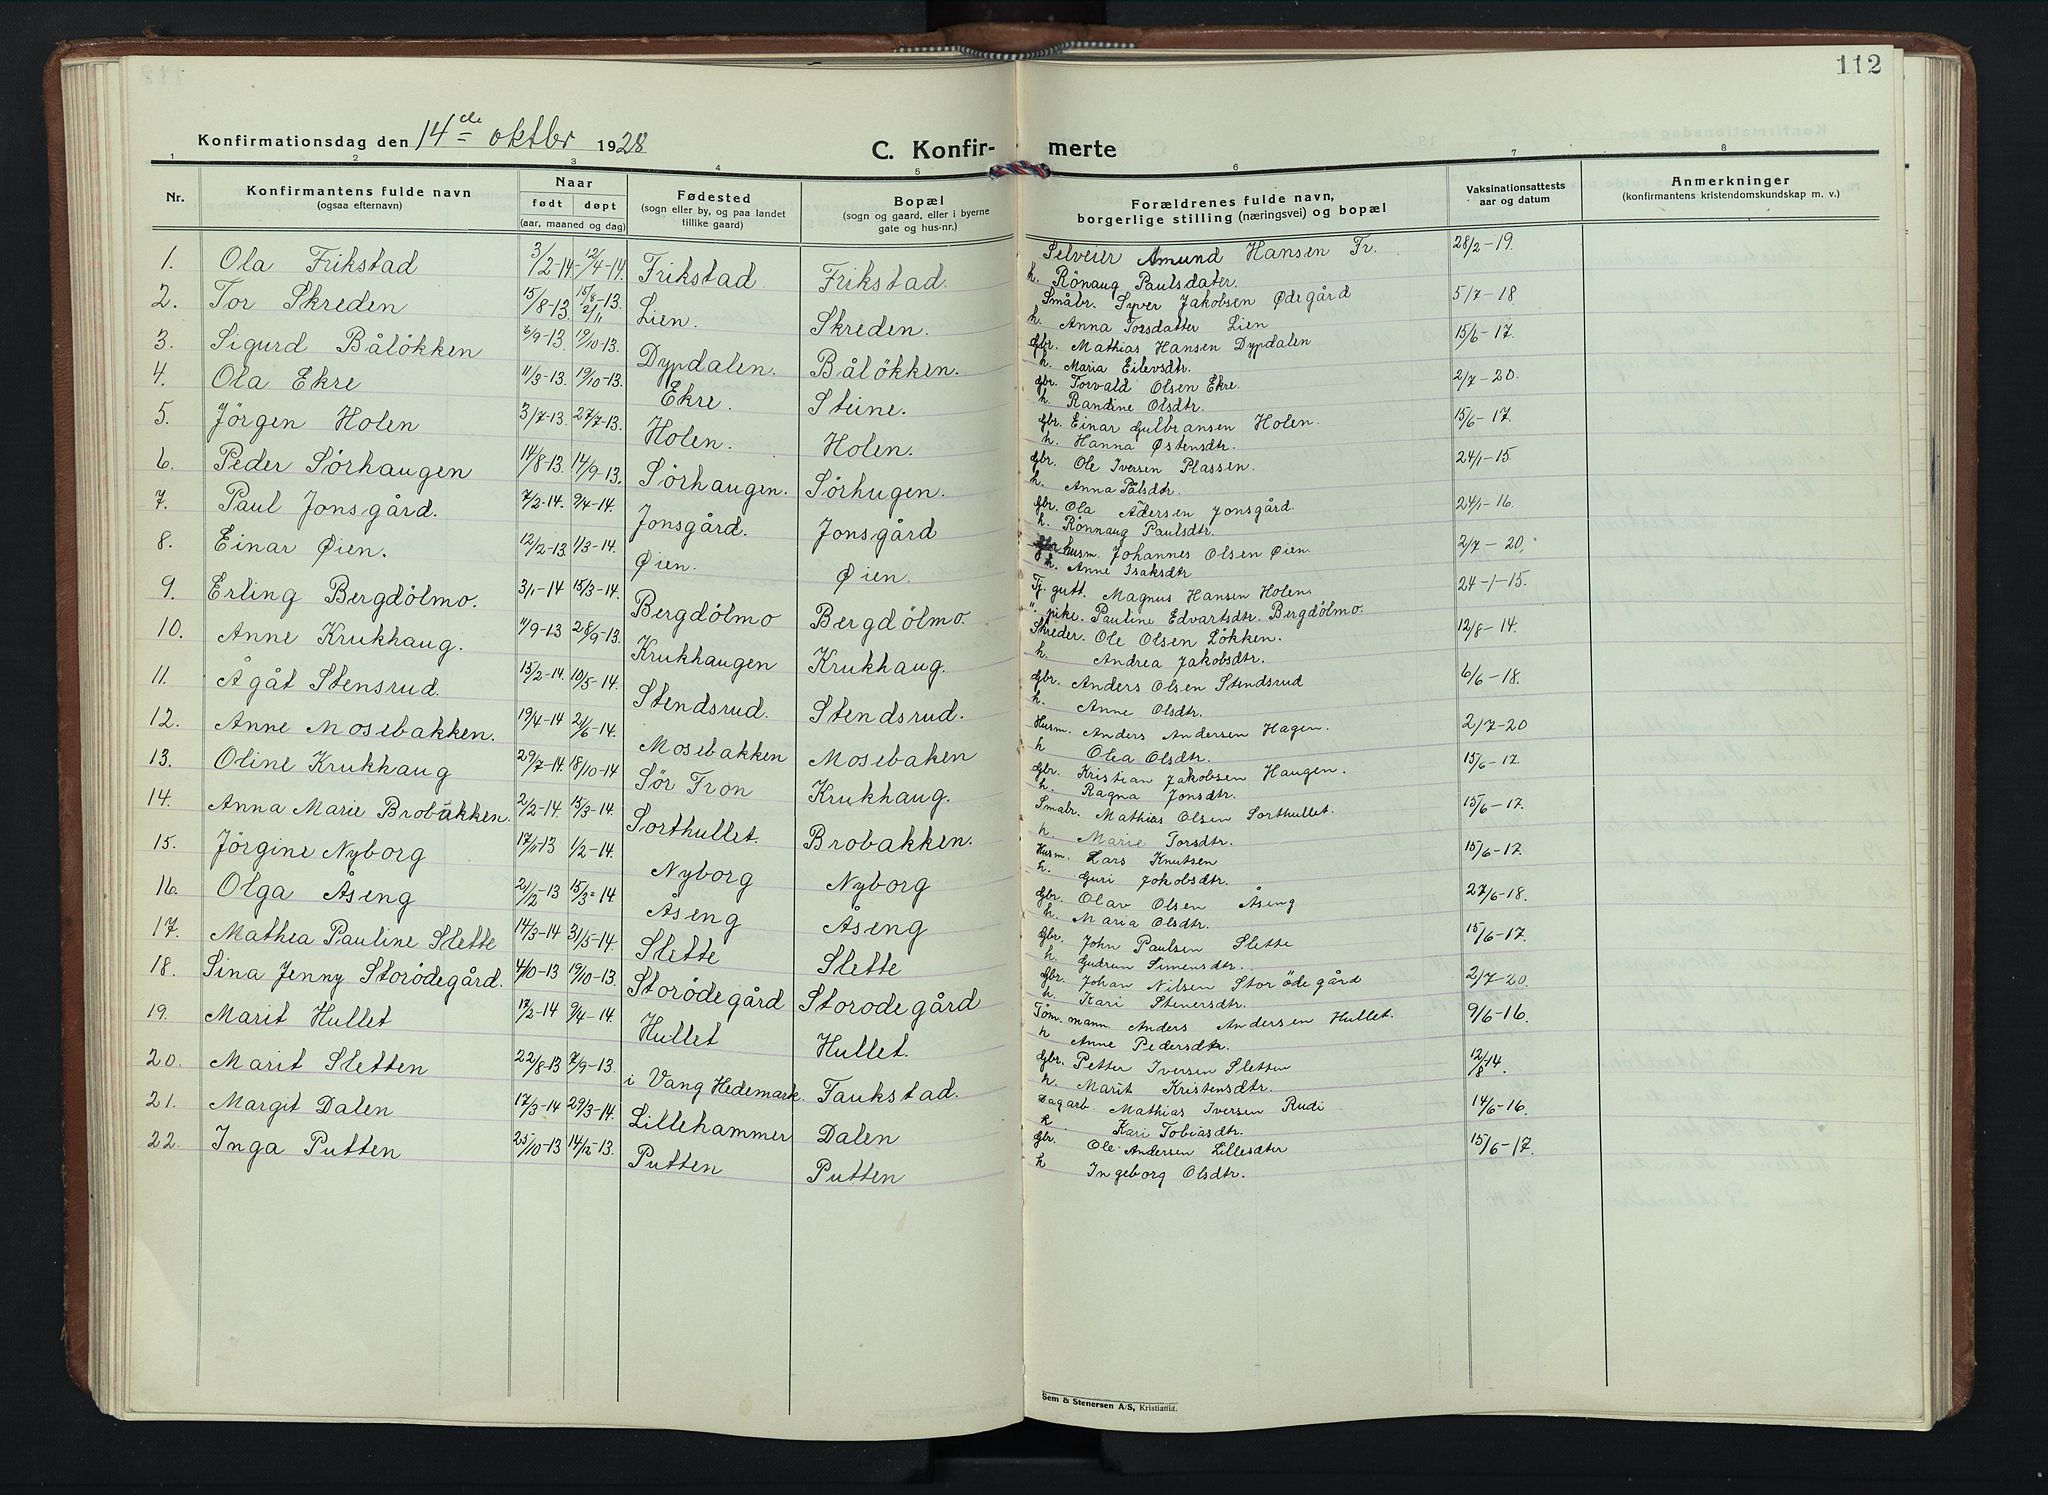 112
Konfirmationsdag den 14de oktbr 1928
C. Konfir- merte
1 2 3 4 5 6 7 8
Nr. Konfirmantens fulde navn (ogsaa efternavn) Naar født døpt (aar, maaned og dag) Fødested (sogn eller by, og paa landet tillike gaard) Bopæl (sogn og gaard, eller i byerne gate og hus-nr.) Forældrenes fulde navn, borgerlige stilling (næringsvei) og bopæl Vaksinationsattests aar og datum Anmerkninger (konfirmantens kristendomskundskap m. v.)
1. Ola Frikstad 3/2-14 12/4-14. Frikstad. Frikstad. Selveier Amund Hansen Fr. 28/2-19.
h. Rönaug Paulsdater.
2. Tor Skreden 15/8-13. 15/8-13. 2/11 Lien. Skreden. Småbr. Syver Jakobsen Ødegård 5/7-18
h. Anna Torsdatter Lien
3. Sigurd Bålökken 6/9-13. 19/10-13. Dypdalen. Bålökken. Gbr. Mathias Hansen Dypdalen 15/6-17.
h. Maria Eilevsdtr.
4. Ola Ekre 11/9-13. 19/10-13. Ekre. Steine. Gbr. Torvald Olsen Ekre. 2/7-20.
h. Randine Olsdtr.
5. Jörgen Holen 3/7-13. 27/7-13. Holen. Holen. Gbr. Einar Gulbransen Holen. 15/6-17.
h. Hanna Østensdtr.
6. Peder Sörhaugen 14/8-13. 14/9-13. Sörhaugen. Sörhugen. Gbr. Ole Iversen Plassen. 24/1-15.
h. Anna Pålsdtr.
7. Paul Jonsgård. 7/2-14. 9/4-14. Jonsgård. Jonsgård Gbr. Ola Adersen Jonsgård. 24/1-16.
h. Rönnaug Paulsdtr.
8. Einar Øien. 12/2-13. 1/3-14. Øien. Øien. husm. Johannes Olsen Øien 2/7-20.
h. Anne Isaksdtr
9. Erling Bergdölmo. 3/1-14 15/3-14. Bergdölmo Bergdölmo. Tj. gutt. Magnus Hansen Holen. 24-1-15.
". pike. Pauline Edvartsdtr. Bergdölmo.
10. Anne Krukhaug. 11/9-13 28/9-13. Krukhaugen Krukhaug. Skreder. Ole Olsen Lökken. 12/8-14.
h. Andrea Jakobsdtr.
11. Ågåt Stensrud. 15/2-14. 10/5-14. Stendsrud. Stendsrud. Gbr. Anders Olsen Stendsrud 6/6-18.
h. Anne Olsdtr.
12. Anne Mosebakken. 19/4-14 2/6-14. Mosebakken Mosebaken Husm. Anders Andersen Hagen. 2/7-20
h Olea Olsdtr.
13. Oline Krukhaug 29/7-14. 18/10-14 Sör Fron Krukhaug. Gbr. Kristian Jakobsen Haugen. 15/6-17.
h. Ragna Jonsdtr.
14. Anna Marie Brobakken. 2/2-14. 15/3-14. Sorthullet. Brobakken. Småbr. Mathias Olsen Sorthullet. 15/6-17.
h. Marie Torsdtr.
15. Jörgine Nyborg 17/11-13 1/2-14. Nyborg Nyborg Husm. Lars Knutsen 15/6-17.
h. Guri Jakobsdtr.
16. Olga Åseng 21/12-13 15/3-14. Åseng Åseng Gbr. Olav Olsen Åseng 27/6-18.
h. Maria Olsdtr.
17. Mathea Pauline Slette 14/3-14 31/5-14. Slette Slette Gbr. John Paulsen Slette 15/6-17.
h. Gudrun Simensdtr.
18. Sina Jenny Storödegård. 4/10-13 19/10-13. Storödegård Storodegård Gbr. Johan Nilsen Storödegård 2/7-20.
h. Kari Stenersdtr.
19. Marit Hullet 17/2-14 9/4-14. Hullet Hullet. Töm.mann. Anders Andersen Hullet. 9/6-16.
h Anne Pedersdtr.
20. Marit Sletten 22/8-13 7/9-13. i Vang Hedemark. Faukstad. Gbr. Petter Iversen Sletten 12/8 14.
h. Marit Kristensdtr.
21. Margit Dalen 17/3-14 29/3-14. Lillehammer Dalen Dagarb. Mathias Iversen Rudi 14/6-16.
h. Kari Tobiasdtr.
22. Inga Putten 25/10-13 14/12-13. Putten Putten Gbr. Ole Andersen Lillesdter 15/6-17.
h Ingeborg Olsdtr.
Sem & Stenersen A/S, Kristiania.